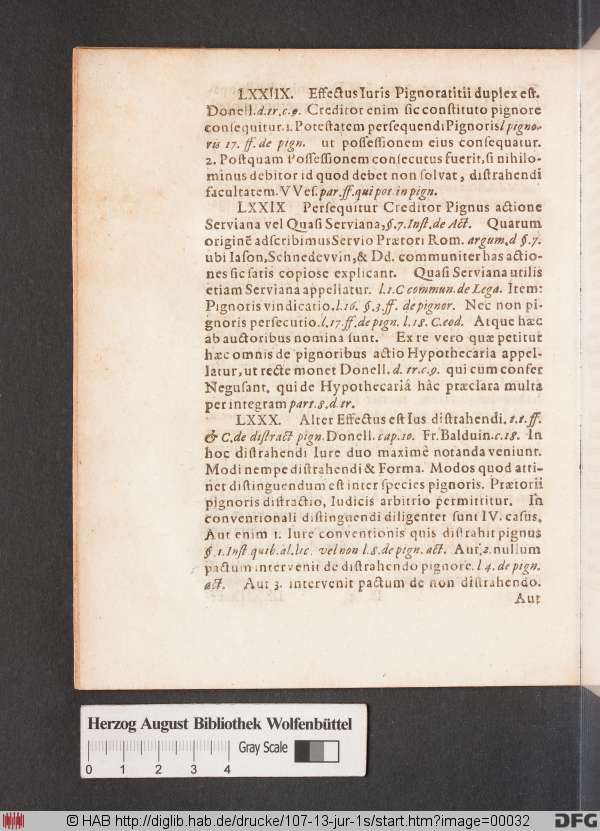 LXXIIX. Effectus Iuris Pignoratitii duplex est.
Donell. d. tr. c. 9. Creditor enim sic constituto pignore
consequitur. 1. Potestatem persequendi Pignoris l pigno-
ris 17. ff. de pign. ut possessionem eius consequatur.
2. Postquam Possessionem consecutus fuerit, si nihilo-
minus debitor id quod debet non solvat, distrahendi
facultatem. VVes. par. ff. qui pot. in pign.
LXXIX Persequitur Creditor Pignus actione
Serviana vel Quasi Serviana, §. 7. Inst. de Act. Quarum
originẽ adscribimus Servio Prætori Rom. argum. d §. 7.
ubi Iason, Schnedevvin, & Dd. communiter has actio-
nes sic satis copiose explicant. Quasi Serviana utilis
etiam Serviana appellatur. l. 1. C commun. de Lega. Item:
Pignoris vindicatio. l. 16. §. 3. ff. de pignor. Nec non pi-
gnoris persecutio. l. 17. ff. de pign. l. 18. C. eod. Atque hæc
ab auctoribus nomina sunt. Ex re vero quæ petitur
hæc omnis de pignoribus actio Hypothecaria appel-
latur, ut recte monet Donell. d. tr. c. 9. qui cum confer
Negusant. qui de Hypothecariâ hâc præclara multa
per integram part. 8. d. tr.
LXXX. Alter Effectus est Ius distrahendi. t. t. ff.
& C. de distract pign. Donell. cap. 10. Fr. Balduin. c. 18. In
hoc distrahendi Iure duo maximè notanda veniunt.
Modi nempe distrahendi & Forma. Modos quod atti-
net distinguendum est inter species pignoris. Prætorii
pignoris distractio, Iudicis arbitrio permittitur. In
conventionali distinguendi diligenter sunt IV. casus.
Aut enim 1. Iure conventionis quis distrahit pignus
§. 1. Inst quib. al. lic. vel non l. 8. de pign. act. Aut 2. nullum
pactum intervenit de distrahendo pignore. l. 4. de pign.
act. Aut 3. intervenit pactum de non distrahendo.
Aut
Herzog August Bibliothek Wolfenbüttel
Gray Scale
0 1 2 3 4
© HAB http://diglib.hab.de/drucke/107-13-jur-1s/start.htm?image=00032
DFG